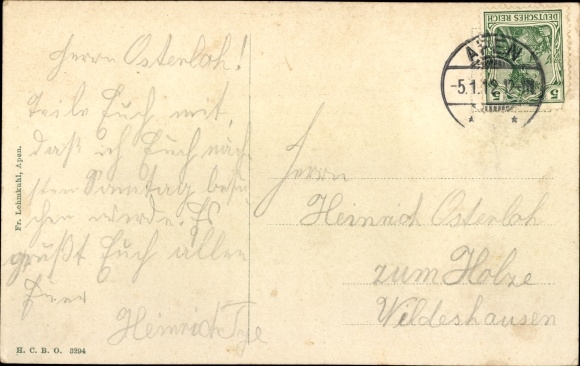 Herrn Osterloh!
Teile Euch mit,
daß ich Euch näch
sten Sonntag besu
chen werde. Es
grüßt Euch allen
Euer
Heinrich
Fr. Lehmkuhl, Apen.
H. C. B. O. 3294
DEUTSCHES REICH
5 5
APEN
-5.1.
Herrn
Heinrich Osterloh
zum Holze
Wildeshausen